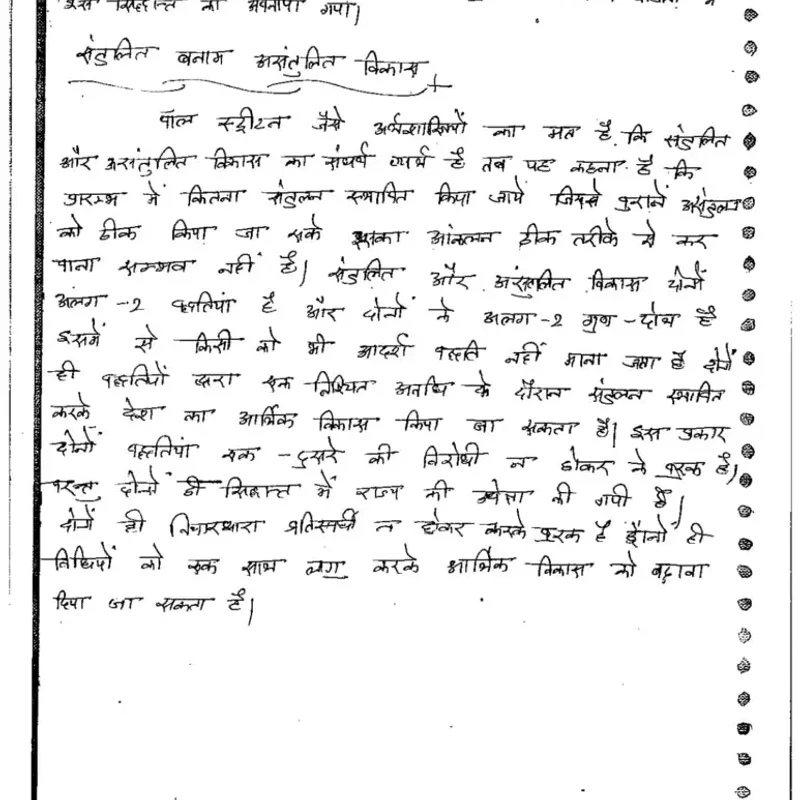 इस सिद्धान्त को अपनाया गया।
संतुलित बनाम असंतुलित विकास
पॉल स्ट्रीटन जैसे अर्थशास्त्रियों का मत है कि संतुलित
और असंतुलित विकास का संघर्ष व्यर्थ है तब यह कहना है कि
प्रारम्भ में कितना संतुलन स्थापित किया जाये जिससे पुराने असंतुलन
को ठीक किया जा सके इसका आंकलन ठीक तरीके से कर
पाना सम्भव नहीं है। संतुलित और असंतुलित विकास दोनों
अलग -2 पद्धतियां है और दोनों के अलग -2 गुण - दोष है
इसमें से किसी को भी आदर्श पद्धति नहीं माना जाता है दोनों
ही पद्धतियों द्वारा एक निश्चित अवधि के दौरान संतुलन स्थापित
करके देश का आर्थिक विकास किया जा सकता है। इस प्रकार
दोनों पद्धतियां एक - दुसरे की विरोधी न होकर के पुरक है।
परन्तु दोनों ही सिद्धान्त में राज्य की उपेक्षा की गयी है।
दोनों ही विचारधारा प्रतिस्पर्धी न होकर करके पुरक है दोनों ही
विधियों को एक साथ लागु करके आर्थिक विकास को बढ़ावा
दिया जा सकता है।